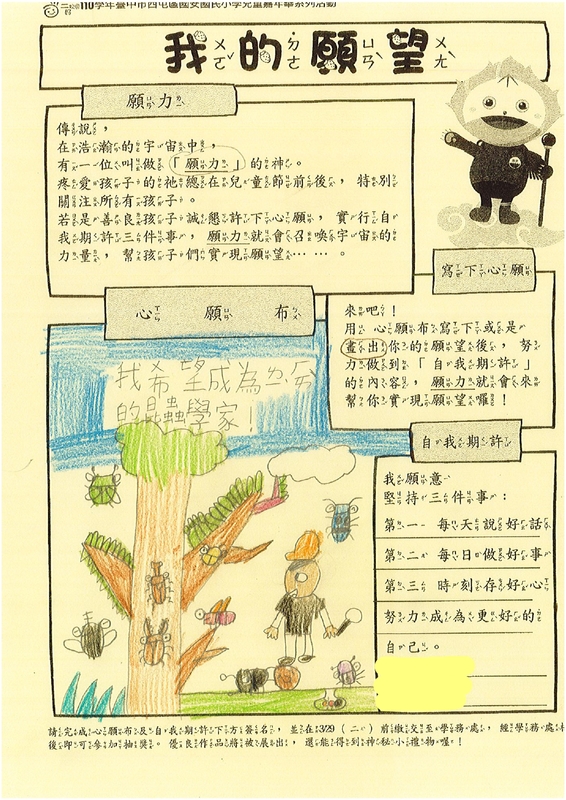 110學年臺中市西屯區國安國民小學兒童嘉年華系列活動
我的願望
願力
傳說，
在浩瀚的宇宙中，
有一位叫做「願力」的神。
疼愛孩子的祂總在兒童節前後，特別
關注所有孩子。
若是善良孩子誠懇許下心願，實行自
我期許三件事，願力就會召喚宇宙的
力量，幫孩子們實現願望……。
寫下心願
來吧！
用心願布寫下或是
畫出你的願望後，努
力做到「自我期許」
的內容，願力就會來
幫你實現願望囉！
心願布
我希望成為ㄉㄧㄢ
的昆蟲學家！
自我期許
我願意
堅持三件事：
第一 每天說好話
第二 每日做好事
第三 時刻存好心
努力成為更好的
自己。
請完成心願布及自我期許下方簽名，並在3/29（二）前繳交至學務處，經學務處
後即可參加抽獎。優良作品將被展出，還能得到神秘小禮物喔！